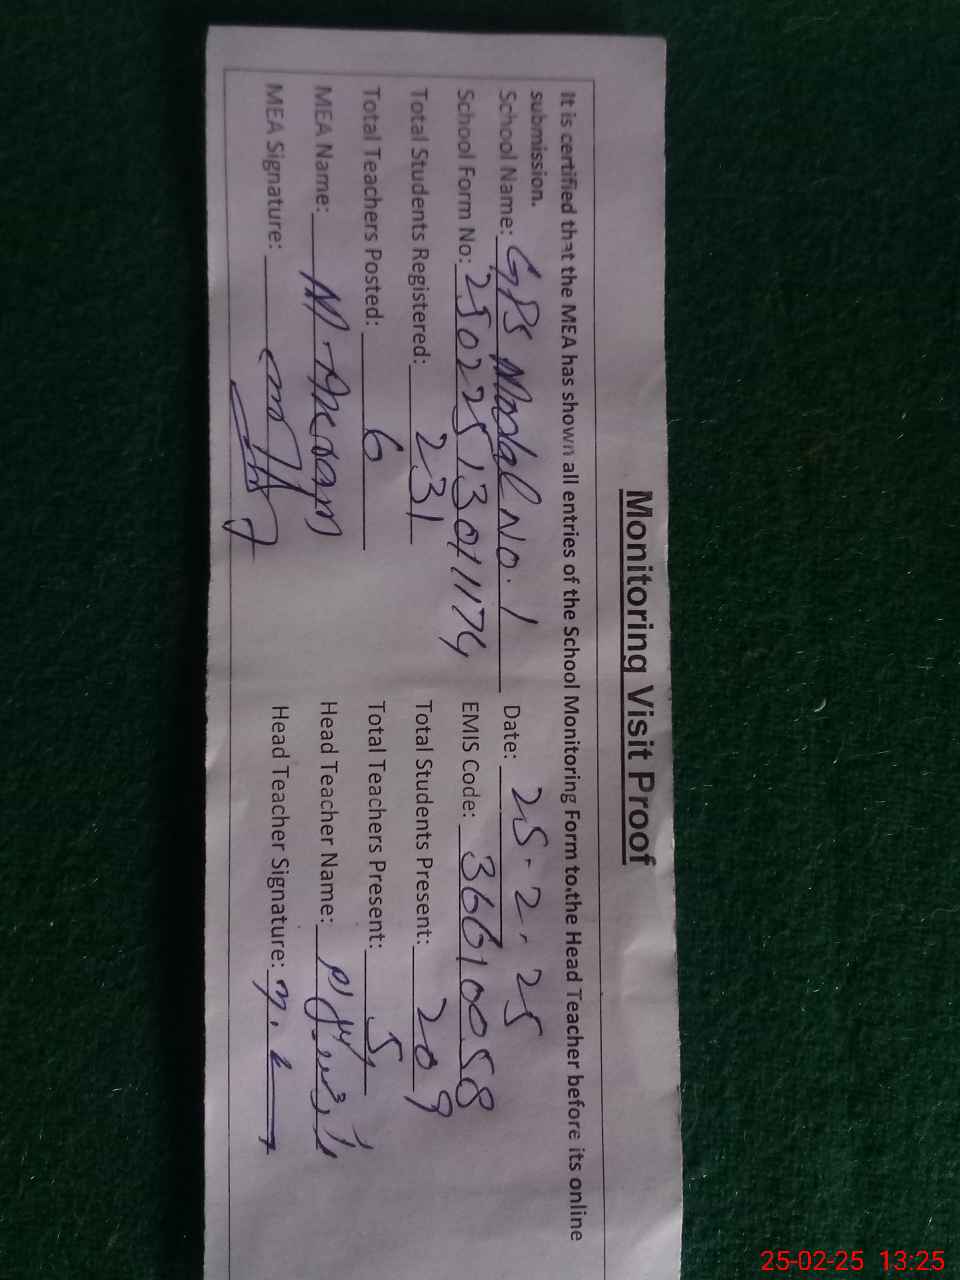 Monitoring Visit Proof
It is certified that the MEA has shown all entries of the School Monitoring Form to the Head Teacher before its online
submission.
School Name: GPS Modal No. 1 Date: 25-2-25
School Form No: 25022513011174 EMIS Code: 36610058
Total Students Registered: 231 Total Students Present: 209
Total Teachers Posted: 6 Total Teachers Present: 5
MEA Name: M. Akram Head Teacher Name:
MEA Signature: Head Teacher Signature:
25-02-25 13:25